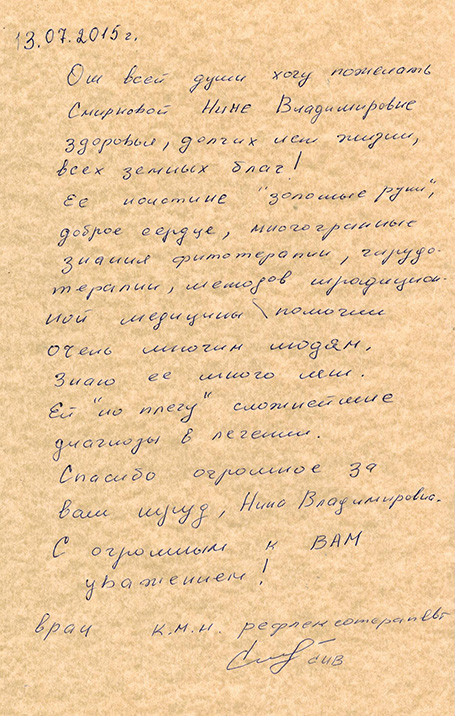 13.07.2015г.
От всей души хочу пожелать
Смирновой Нине Владимировне
здоровья, долгих лет жизни,
всех земных благ!
Её поистине "золотые руки",
доброе сердце, многогранные
знания фитотерапии, гирудо-
терапии, методов традицион-
ной медицины помогли
очень многим людям.
Знаю её много лет.
Ей "по плечу" сложнейшие
диагнозы в лечении.
Спасибо огромное за
ваш труд, Нина Владимировна.
С огромным к ВАМ
уважением!
врач к.м.н. рефлексотерапевт